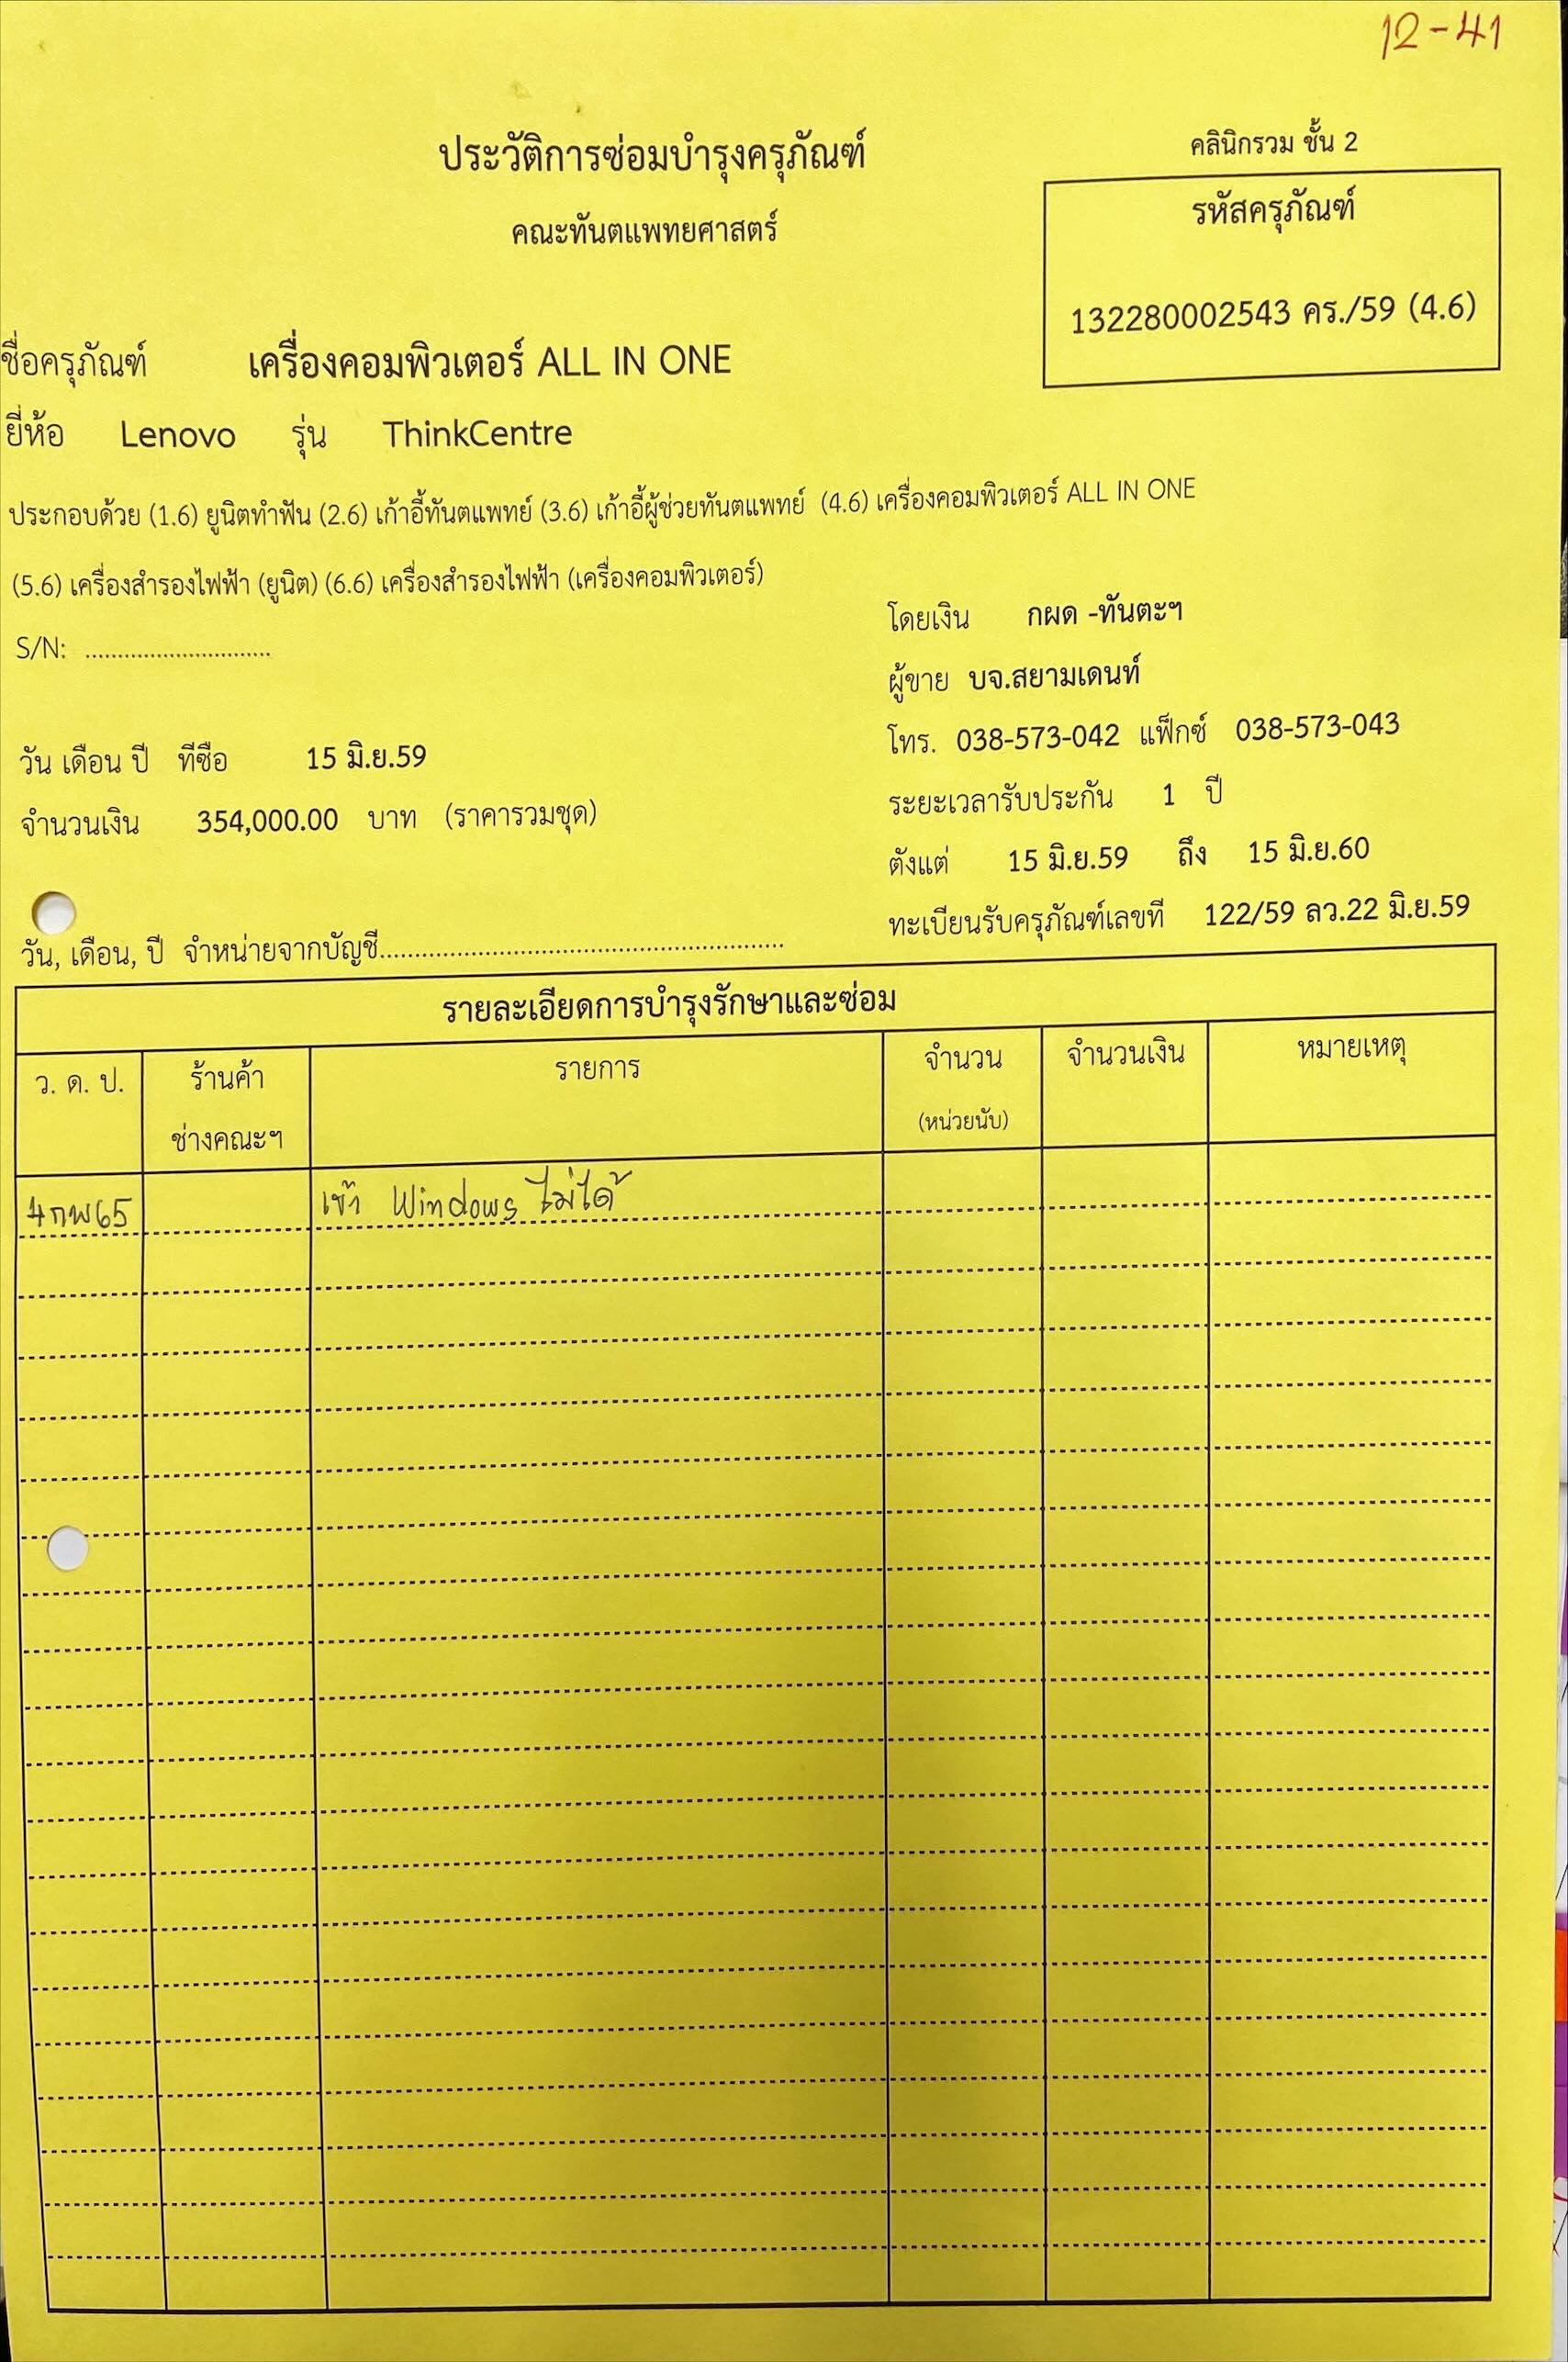 12-41
คลินิกรวม ชั้น 2
ประวัติการซ่อมบำรุงครุภัณฑ์
คณะทันตแพทยศาสตร์
รหัสครุภัณฑ์
132280002543 คร./59 (4.6)
ชื่อครุภัณฑ์ เครื่องคอมพิวเตอร์ ALL IN ONE
ยี่ห้อ Lenovo รุ่น ThinkCentre
ประกอบด้วย (1.6) ยูนิตทำฟัน (2.6) เก้าอี้ทันตแพทย์ (3.6) เก้าอี้ผู้ช่วยทันตแพทย์ (4.6) เครื่องคอมพิวเตอร์ ALL IN ONE
(5.6) เครื่องสำรองไฟฟ้า (ยูนิต) (6.6) เครื่องสำรองไฟฟ้า (เครื่องคอมพิวเตอร์)
S/N: ............................
โดยเงิน กผด -ทันตะฯ
ผู้ขาย บจ.สยามเดนท์
โทร. 038-573-042 แฟ็กซ์ 038-573-043
วัน เดือน ปี ที่ซื้อ 15 มิ.ย.59
ระยะเวลารับประกัน 1 ปี
จำนวนเงิน 354,000.00 บาท (ราคารวมชุด)
ตั้งแต่ 15 มิ.ย.59 ถึง 15 มิ.ย.60
ทะเบียนรับครุภัณฑ์เลขที่ 122/59 ลว.22 มิ.ย.59
วัน, เดือน, ปี จำหน่ายจากบัญชี............................................................
รายละเอียดการบำรุงรักษาและซ่อม
ว. ด. ป. ร้านค้า รายการ จำนวน จำนวนเงิน หมายเหตุ
ช่างคณะฯ (หน่วยนับ)
4กพ65 เข้า Windows ไม่ได้